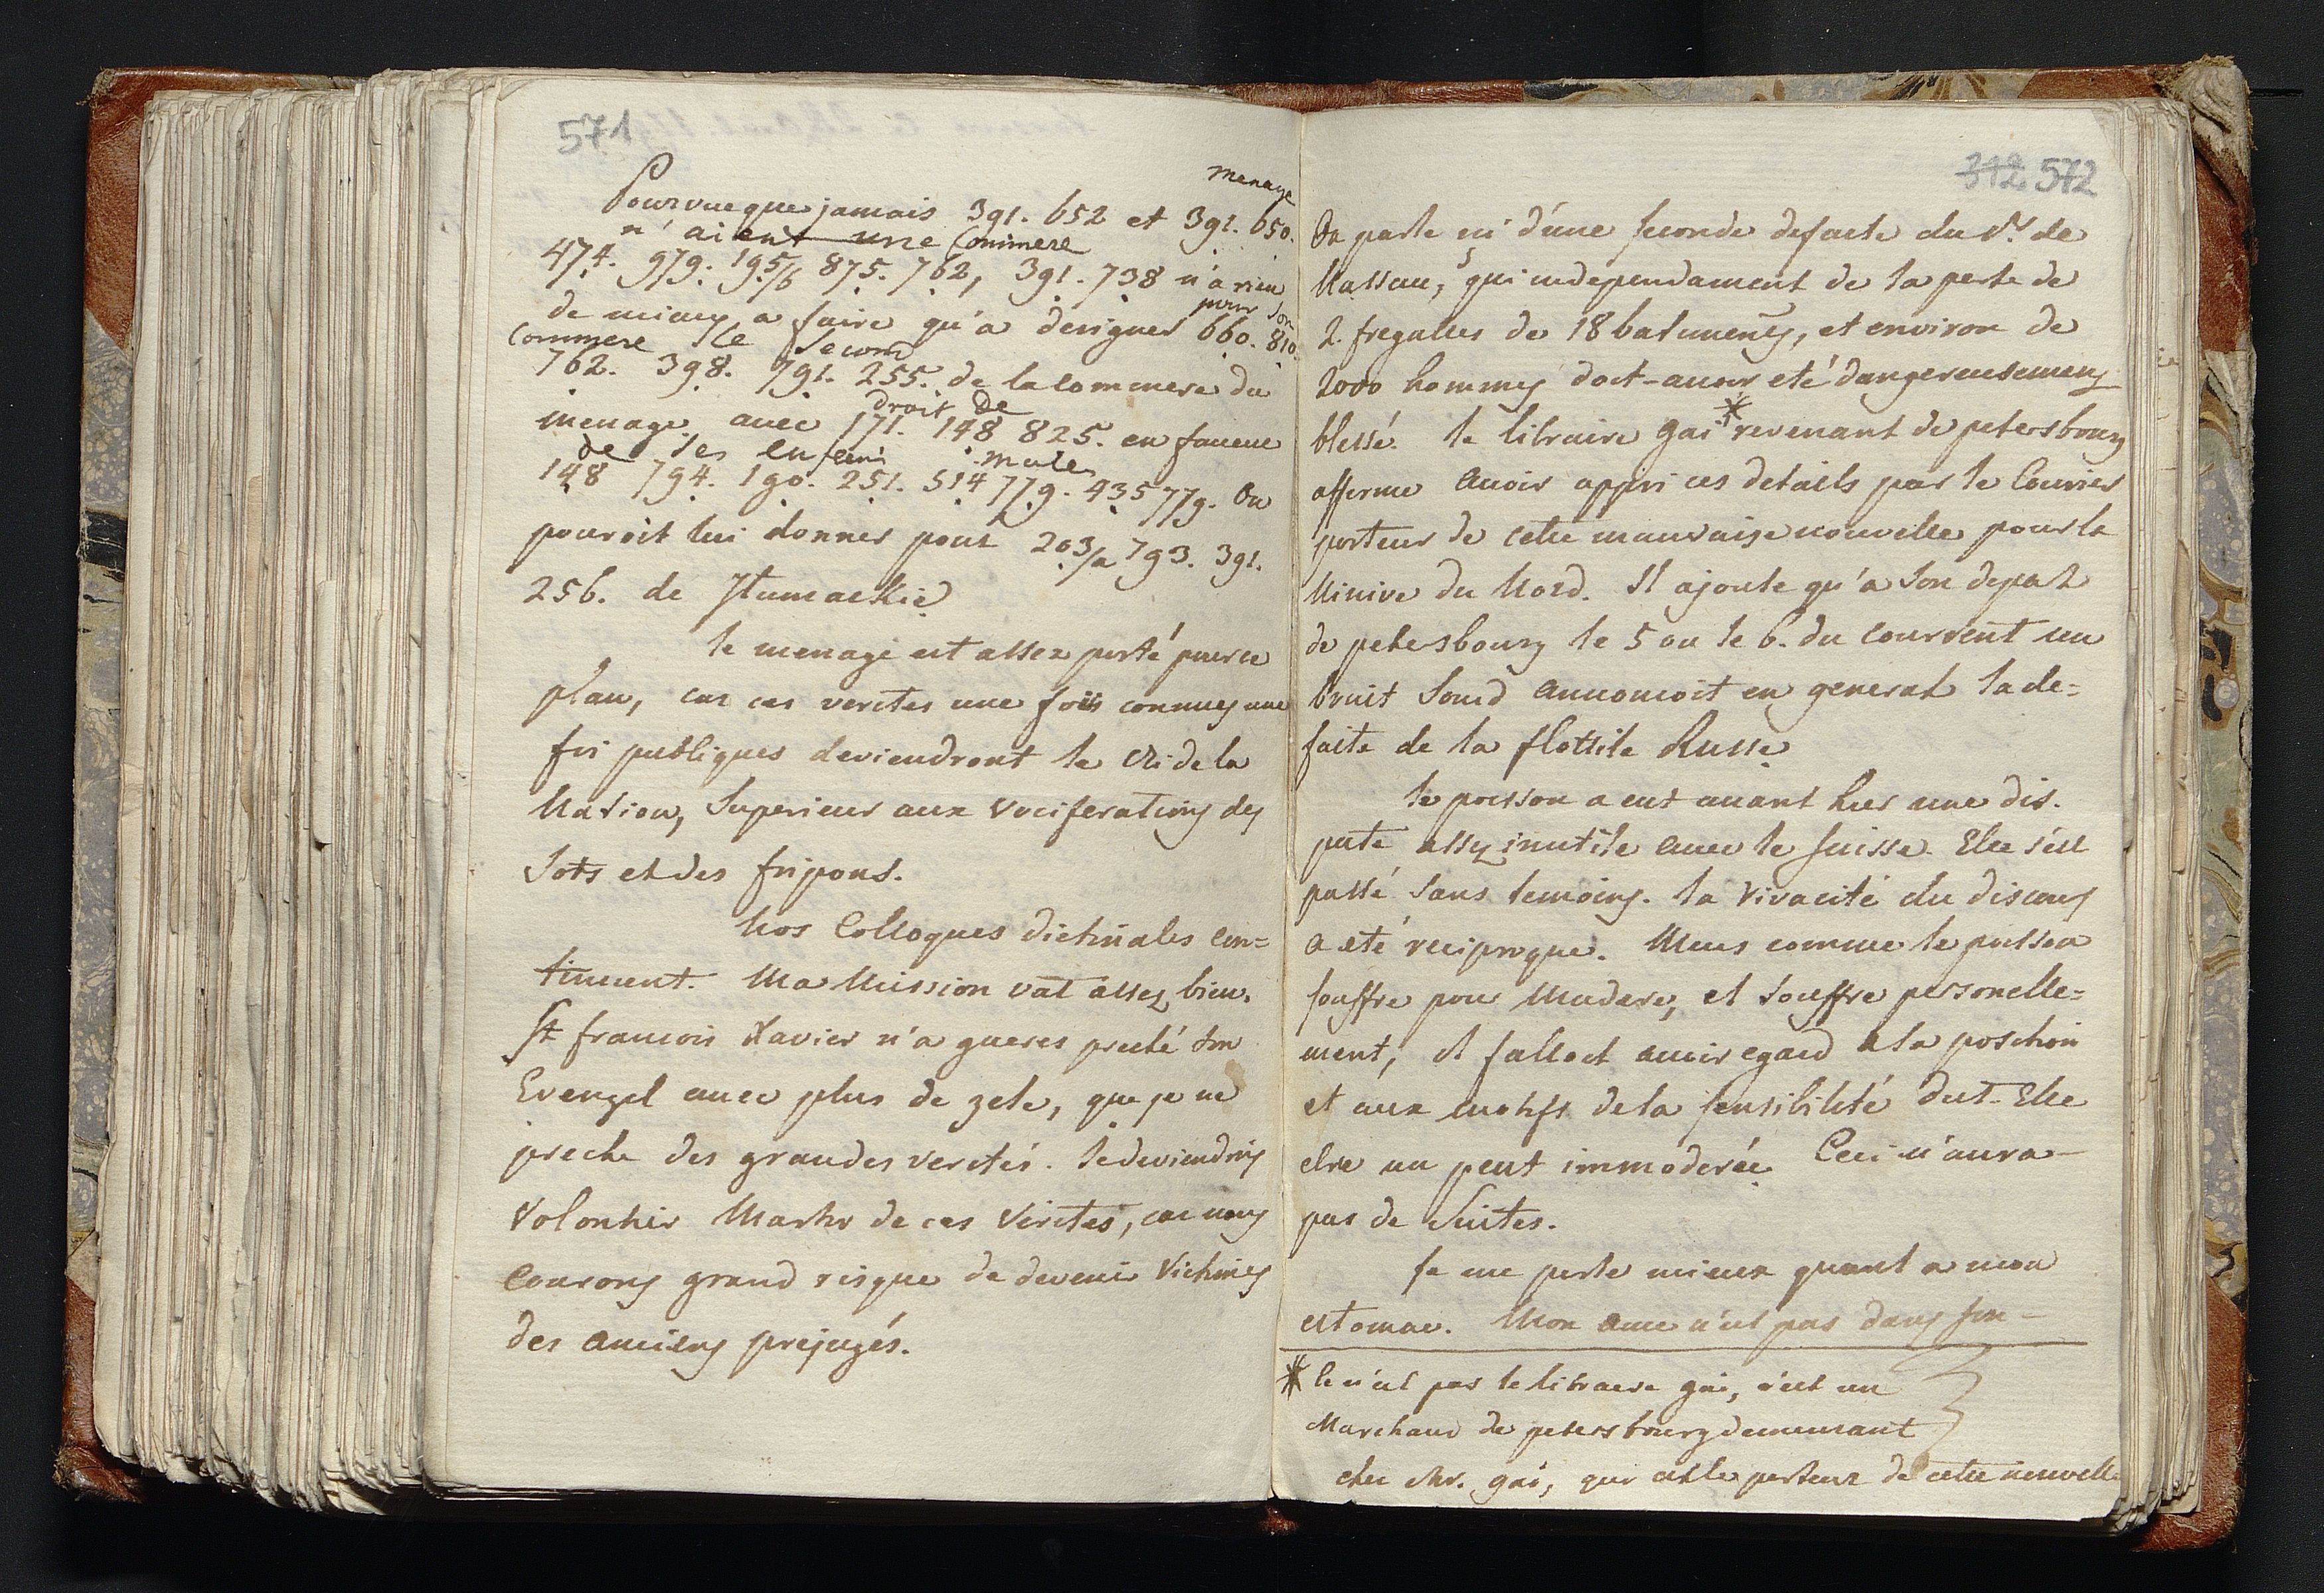 571
menage
Pourvueque jamais 391. 652 et 391. 650.
n'aient une Commere
474. 979. 195/6 875. 762, 391. 738 n'a rien
de mieux a faire qu'a designer 660. 810.
pour son
Commere le second
762. 398. 791. 255. de la commere du
droit de
menage avec 171. 148 825. en faveur
de ses enfans males
148 794. 190. 251. 514 779. 435 779. On
pouroit lui donner pour 203/a 793. 391.
256. de Humaekie
le menage est assez porté pour ce
plan, car ces verites une fois connues une
foi publiques deviendront le Cri de la
Nation, Superieur aux vociferations des
Sots et des fripons.
Nos Colloques diétinales con=
tinuent. Ma Mission vat assez bien.
St francois Xavier n'a gueres preché son
Evengel avec plus de zele, que je ne
preche des grandes verités. Je deviendrois
Volontier Martir de ces Verites, car nous
Courons grand risque de devenir Victimes
des anciens prejugés.
312. 572
On parle ici d'une seconde defaite du Pr. de
Nassau, qui independament de la perte de
2. fregattes de 18 batiments, et environ de
2000 hommes doit-avoir eté dangereusement
blessé. le libraire Gai* revenant de petersbourg
afferme avoir appri ces details par le Courier
porteur de cette mauvaise nouvelle pour la
Ninive du Nord. Il ajoute qu'a son depart
de petersbourg le 5 ou le 6. du courrent un
bruit Sourd annoncoit en general la de=
faite de la flottile Russe.
le poisson a eut avant hier une dis.
pute assez inutile avec le Suisse. Elle s'est
passé sans temoins. la Vivacité du discours
a eté reciproque. Mais comme le poisson
souffre pour Madame, et souffre personelle=
ment, il falloit avoir egard a la position
et aux motifs de la sensibilité dut-Elle
etre un peut immoderée. Ceci n'aura
pas de Suites.
Je me porte mieux quant a mon
estomac. Mon ame n'est pas dans son
* Ce n'est pas le libraire gai, c'est un
Marchand de petersbourg demeurant
chez Mr. gai, qui est le porteur de cette nouvelle